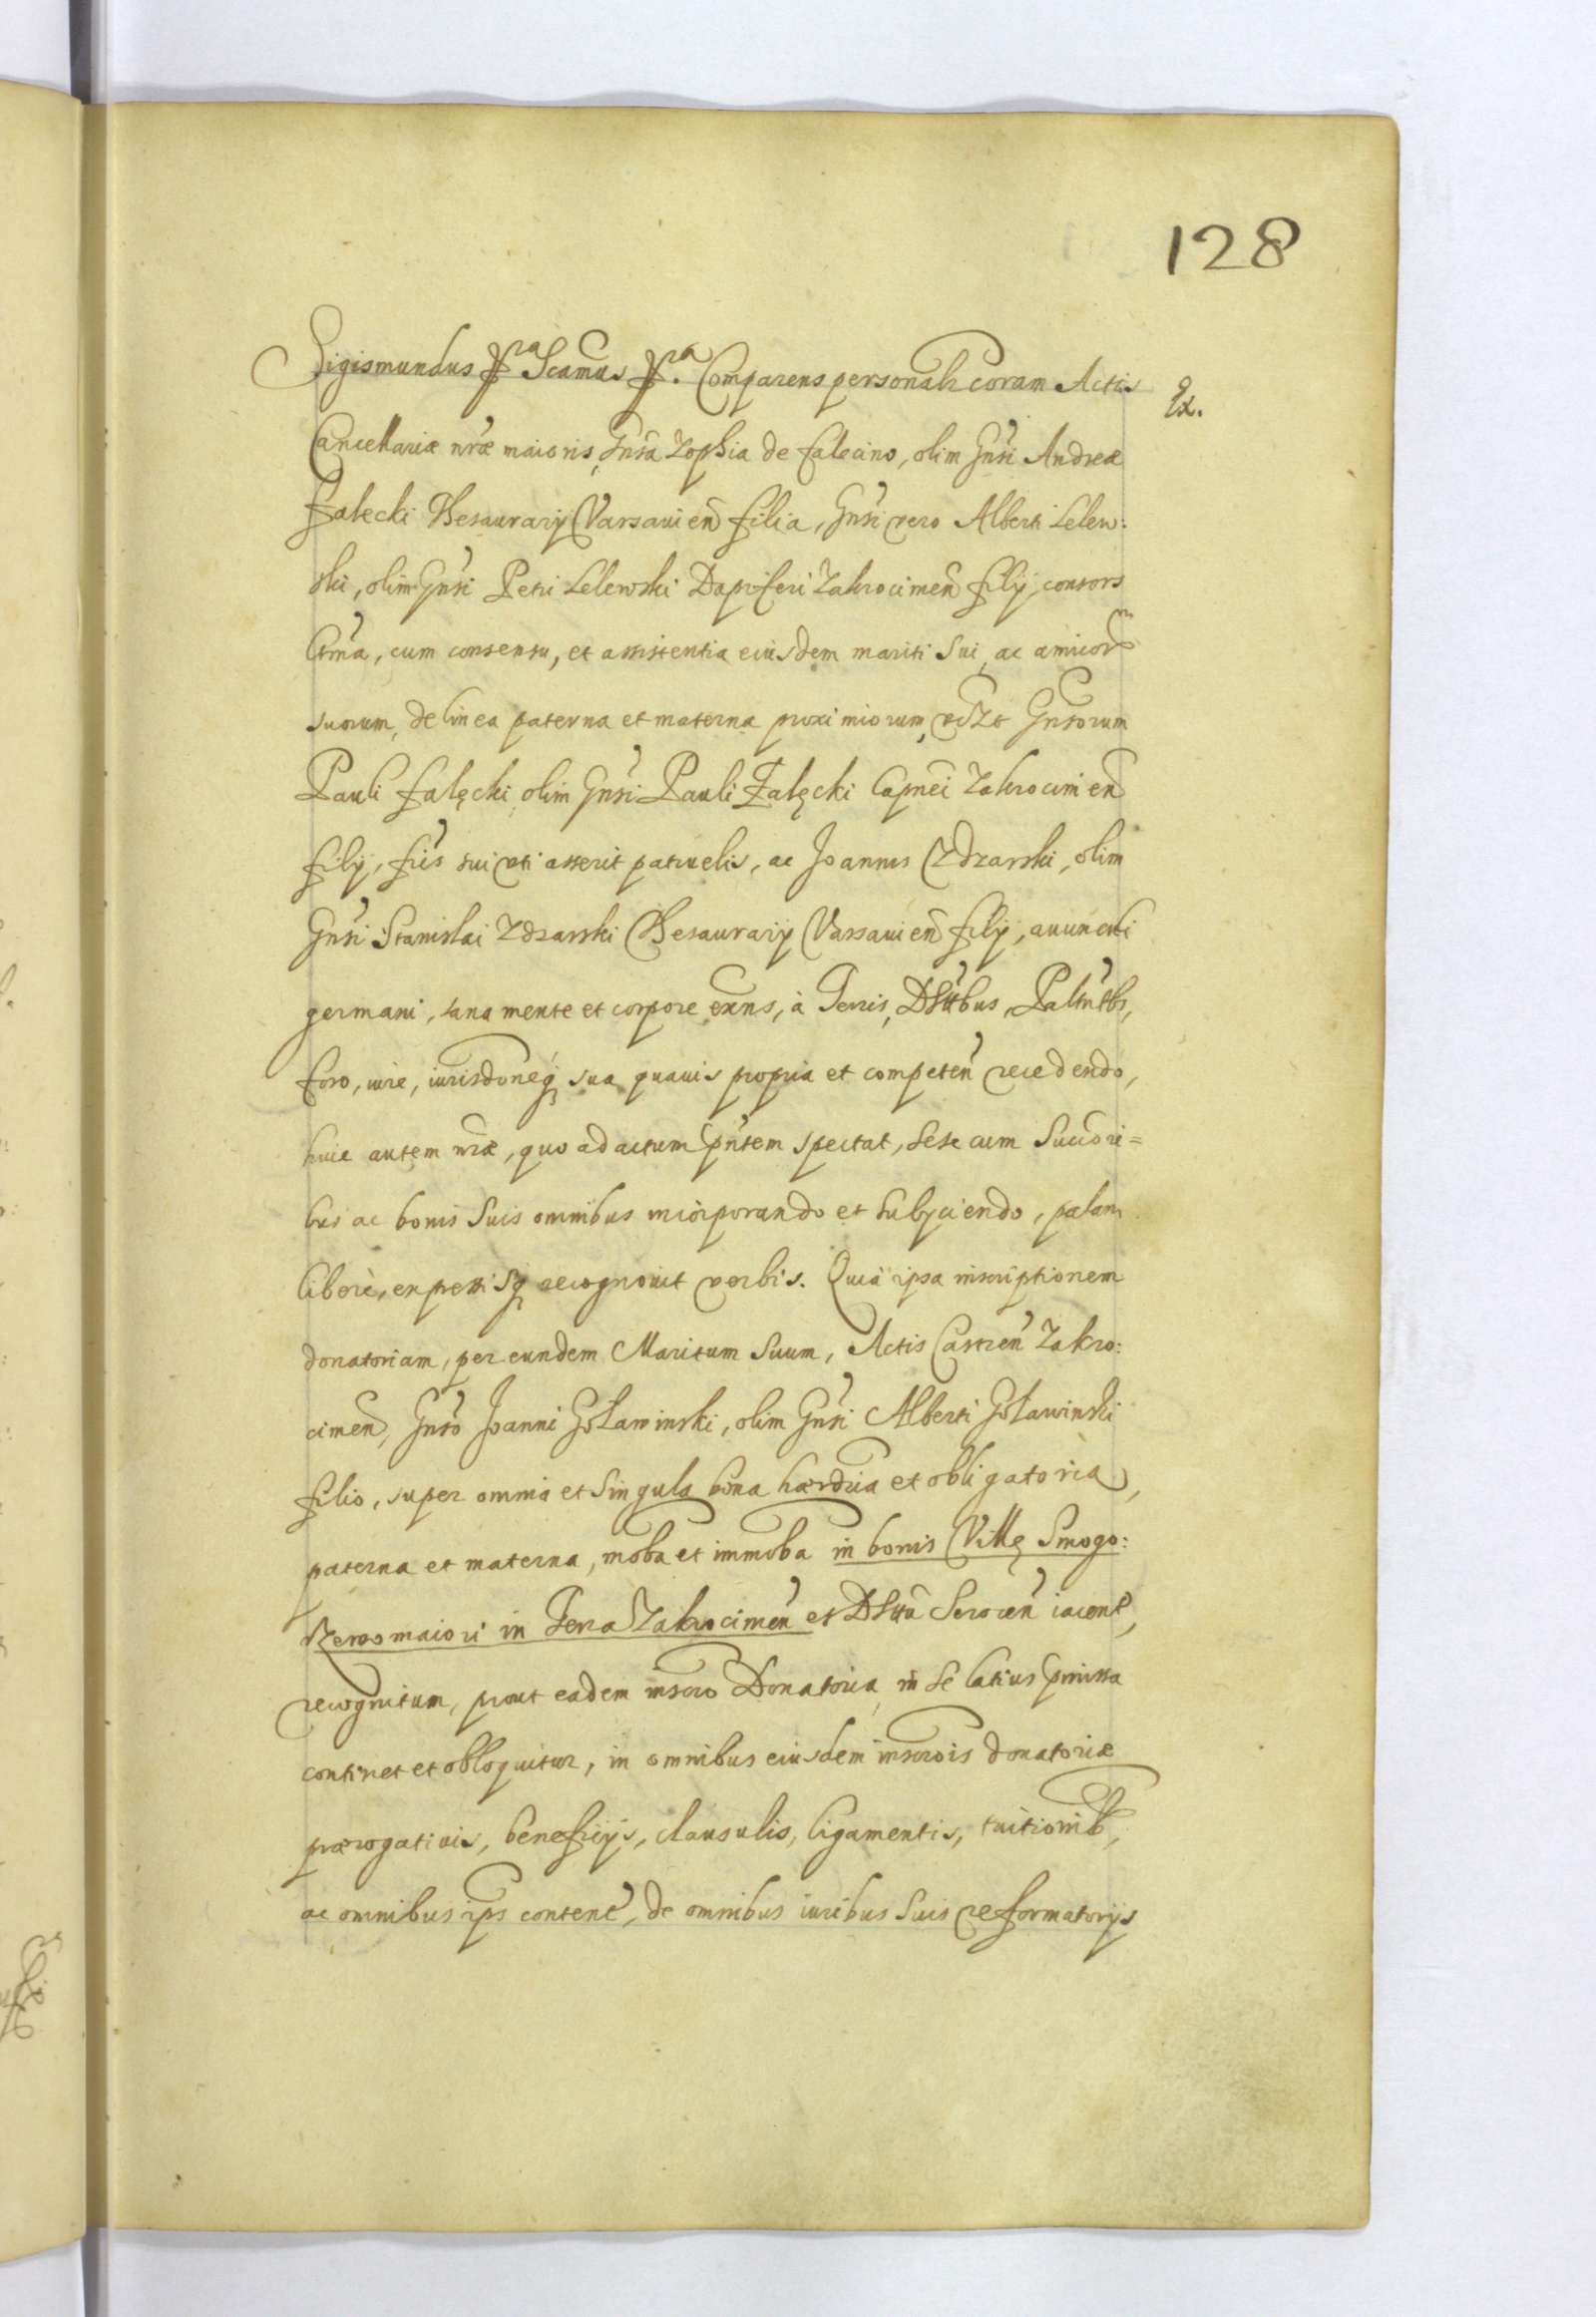 128
Sigismundus ppra Scamus ppra. Comparens personalr coram Actis
Ex.
Cancellariæ nræ maioris, Gnsa Zophia de Falecino, olim Gnsi Andreæ
Falecki Thesaurarij Varsauien filia, Gnsi vero Alberti Lelew:
ski, olim Gnsi Petri Lelewski Dapiferi Zakrocimen filij, consors
ltma, cum consensu, et assistentia eiusdem mariti sui, ac amicorm
suorum, de linea paterna et materna proximiorum, vdzt Gnsorum
Pauli Falęcki, olim Gnsi Pauli Falęcki Capnei Zakrocimien
filij, fris sui uti asserit patruelis, ac Joannis Zdzarski, olim
Gnsi Stanislai Zdzarski Thesaurarij Varsauien filij, auunculi
germani, sana mente et corpore exns, à Terris, Dstibus, Paltntbs,
foro, iure, iurisdoneq sua quauis propria et competen recedendo,
huic autem nræ, quo ad actum pntem spectat, sese cum succori=
bus ac bonis suis omnibus incorporando et subijciendo, palam
liberè, expressisq recognouit verbis. Quià ipsa inscriptionem
donatoriam, per eundem Maritum suum, Actis Castren Zakro:
cimen, Gnso Joanni Goławinski, olim Gnsi Alberti Goławinski
filio, super omnia et singula bona hærdria et obligatoria,
paterna et materna, moba et immoba in bonis Villę Smogo:
rzewo maiori in Terra Zakrocimen et Dstu Serocen iacent,
recognitam, prout eadem inscro Donatoria in se latius pmissa
continet et obloquitur, in omnibus eiusdem inscrois donatoriæ
prærogatiuis, beneficijs, clausulis, ligamentis, tuitionib,
ac omnibus ips content, de omnibus iuribus suis reformatorijs